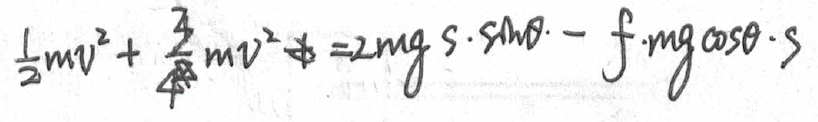 ½mv² + ¾mv² = 2mg s·sinθ· − f·mg cosθ·s